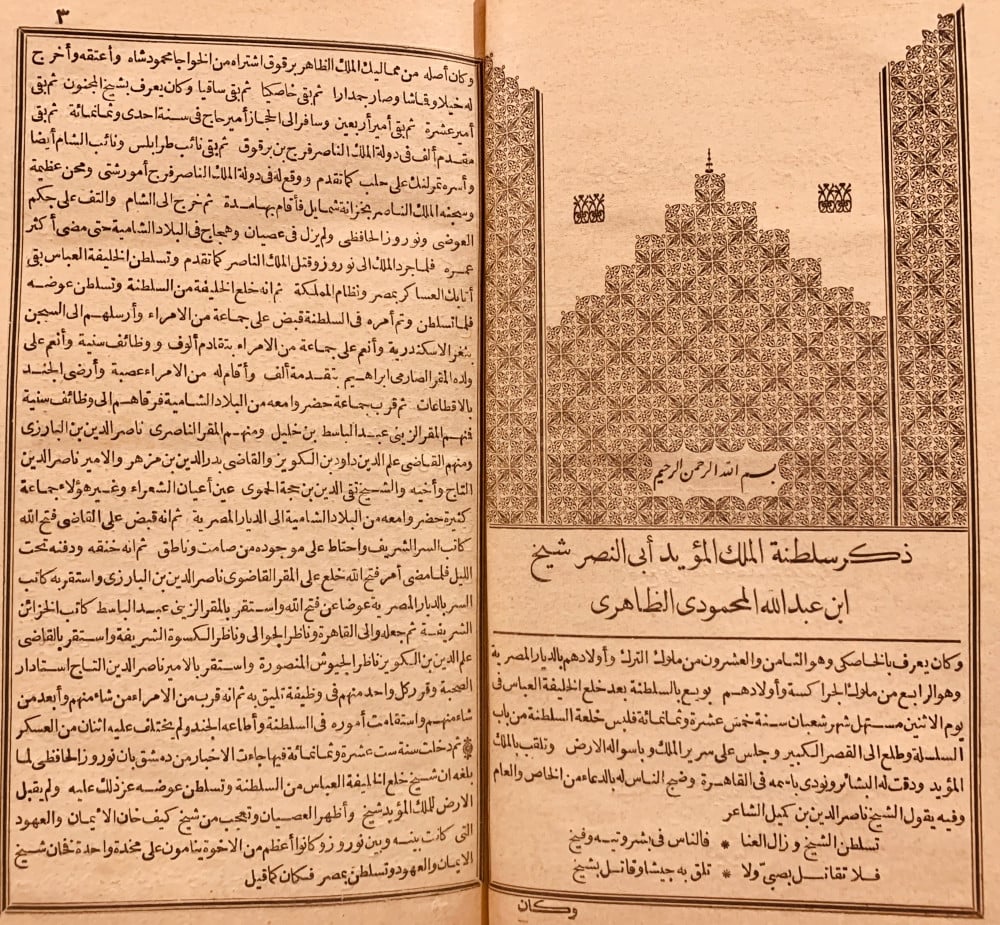 بسم الله الرحمن الرحيم
ذكر سلطنة الملك المؤيد أبي النصر شيخ
ابن عبد الله المحمودى الظاهرى
وكان يعرف بالخاصكى وهو الثامن والعشرون من ملوك الترك وأولادهم بالديار المصرية
وهو الرابع من ملوك الجراكسة وأولادهم بويع بالسلطنة بعد خلع الخليفة العباس فى
يوم الاثنين مستهل شهر شعبان سنة خمس عشرة وثمانمائة فلبس خلعة السلطنة من باب
السلسلة وطلع الى القصر الكبير وجلس على سرير الملك وباسوا له الارض وتلقب بالملك
المؤيد ودقت له البشائر ونودى باسمه فى القاهرة وضج الناس له بالدعاء من الخاص والعام
وفيه يقول الشيخ ناصر الدين بن كميل الشاعر
تسلطن الشيخ وزال العنا * فالناس فى بشر وتيه وفيخ
فلا تقاتل بصبىّ ولا * تلق به جيشا وقاتل بشيخ
وكان
٣
وكان أصله من مماليك الملك الظاهر برقوق اشتراه من الخواجا محمود شاه وأعتقه وأخرج
له خيلا وقماشا وصار جمدارا ثم بقى خاصكيا ثم بقى ساقيا وكان يعرف بشيخ المجنون ثم بقى
أمير عشرة ثم بقى أمير أربعين وسافر الى الحجاز أمير حاج فى سنة احدى وثمانمائة ثم بقى
مقدم ألف فى دولة الملك الناصر فرج بن برقوق ثم بقى نائب طرابلس ونائب الشام أيضا
وأسره تمرلنك على حلب كما تقدم ووقع له فى دولة الملك الناصر فرج أمور شتى ومحن عظيمة
وسجنه الملك الناصر بخزانة شمايل فأقام بها مدة ثم خرج الى الشام والتف على جكم
العوضى ونوروز الحافظى ولم يزل فى عصيان وهجاج فى البلاد الشامية حتى مضى أكثر
عمره فلما جرد الملك الى نوروز وقتل الملك الناصر كما تقدم وتسلطن الخليفة العباس بقى
أتابك العساكر بمصر ونظام المملكة ثم انه خلع الخليفة من السلطنة وتسلطن عوضه
فلما تسلطن وتم أمره فى السلطنة قبض على جماعة من الامراء وأرسلهم الى السجن
بثغر الاسكندرية وأنعم على جماعة من الامراء بتقادم ألوف ووظائف سنية وأنعم على
ولده المقر الصارمى ابراهيم بتقدمة ألف وأقام له من الامراء عصبة وأرضى الجند
بالاقطاعات ثم قرب جماعة حضروا معه من البلاد الشامية فرقاهم الى وظائف سنية
فنهم المقر الزينى عبد الباسط بن خليل ومنهم المقر الناصرى ناصر الدين بن البارزى
ومنهم القاضى علم الدين داود بن الكويز والقاضى بدر الدين بن مزهر والامير ناصر الدين
التاج وأخيه والشيخ تقى الدين بن حجة الحموى عين أعيان الشعراء وغير هؤلاء جماعة
كثيرة حضروا معه من البلاد الشامية الى الديار المصرية ثم انه قبض على القاضى فتح الله
كاتب السر الشريف واحتاط على موجوده من صامت وناطق ثم انه خنقه ودفنه تحت
الليل فلما مضى أمر فتح الله خلع على المقر القاضوى ناصر الدين بن البارزى واستقر به كاتب
السر بالديار المصرية عوضا عن فتح الله واستقر بالمقر الزينى عبد الباسط كاتب الخزائن
الشريفة ثم جعله والى القاهرة وناظر الجوالى وناظر الكسوة الشريفة واستقر بالقاضى
علم الدين بن الكويز ناظر الجيوش المنصورة واستقر بالامير ناصر الدين التاج استادار
الصحبة وقرر كل واحد منهم فى وظيفة تليق به ثم انه قرب من الامراء من شاء منهم وأبعد من
شاء منهم واستقامت أموره فى السلطنة وأطاعه الجند ولم يختلف عليه اثنان من العسكر
* ثم دخلت سنة ست عشرة وثمانمائة فيها جاءت الاخبار من دمشق بان نوروز الحافظى لما
بلغه ان شيخ خلع الخليفة العباس من السلطنة وتسلطن عوضه عز ذلك عليه ولم يقبل
الارض للملك المؤيد شيخ وأظهر العصيان وتعجب من شيخ كيف خان الايمان والعهود
التى كانت بينه وبين نوروز وكانوا أعظم من الاخوة ينامون على مخدة واحدة فخان شيخ
الايمان والعهود وتسلطن بمصر فكان كما قيل